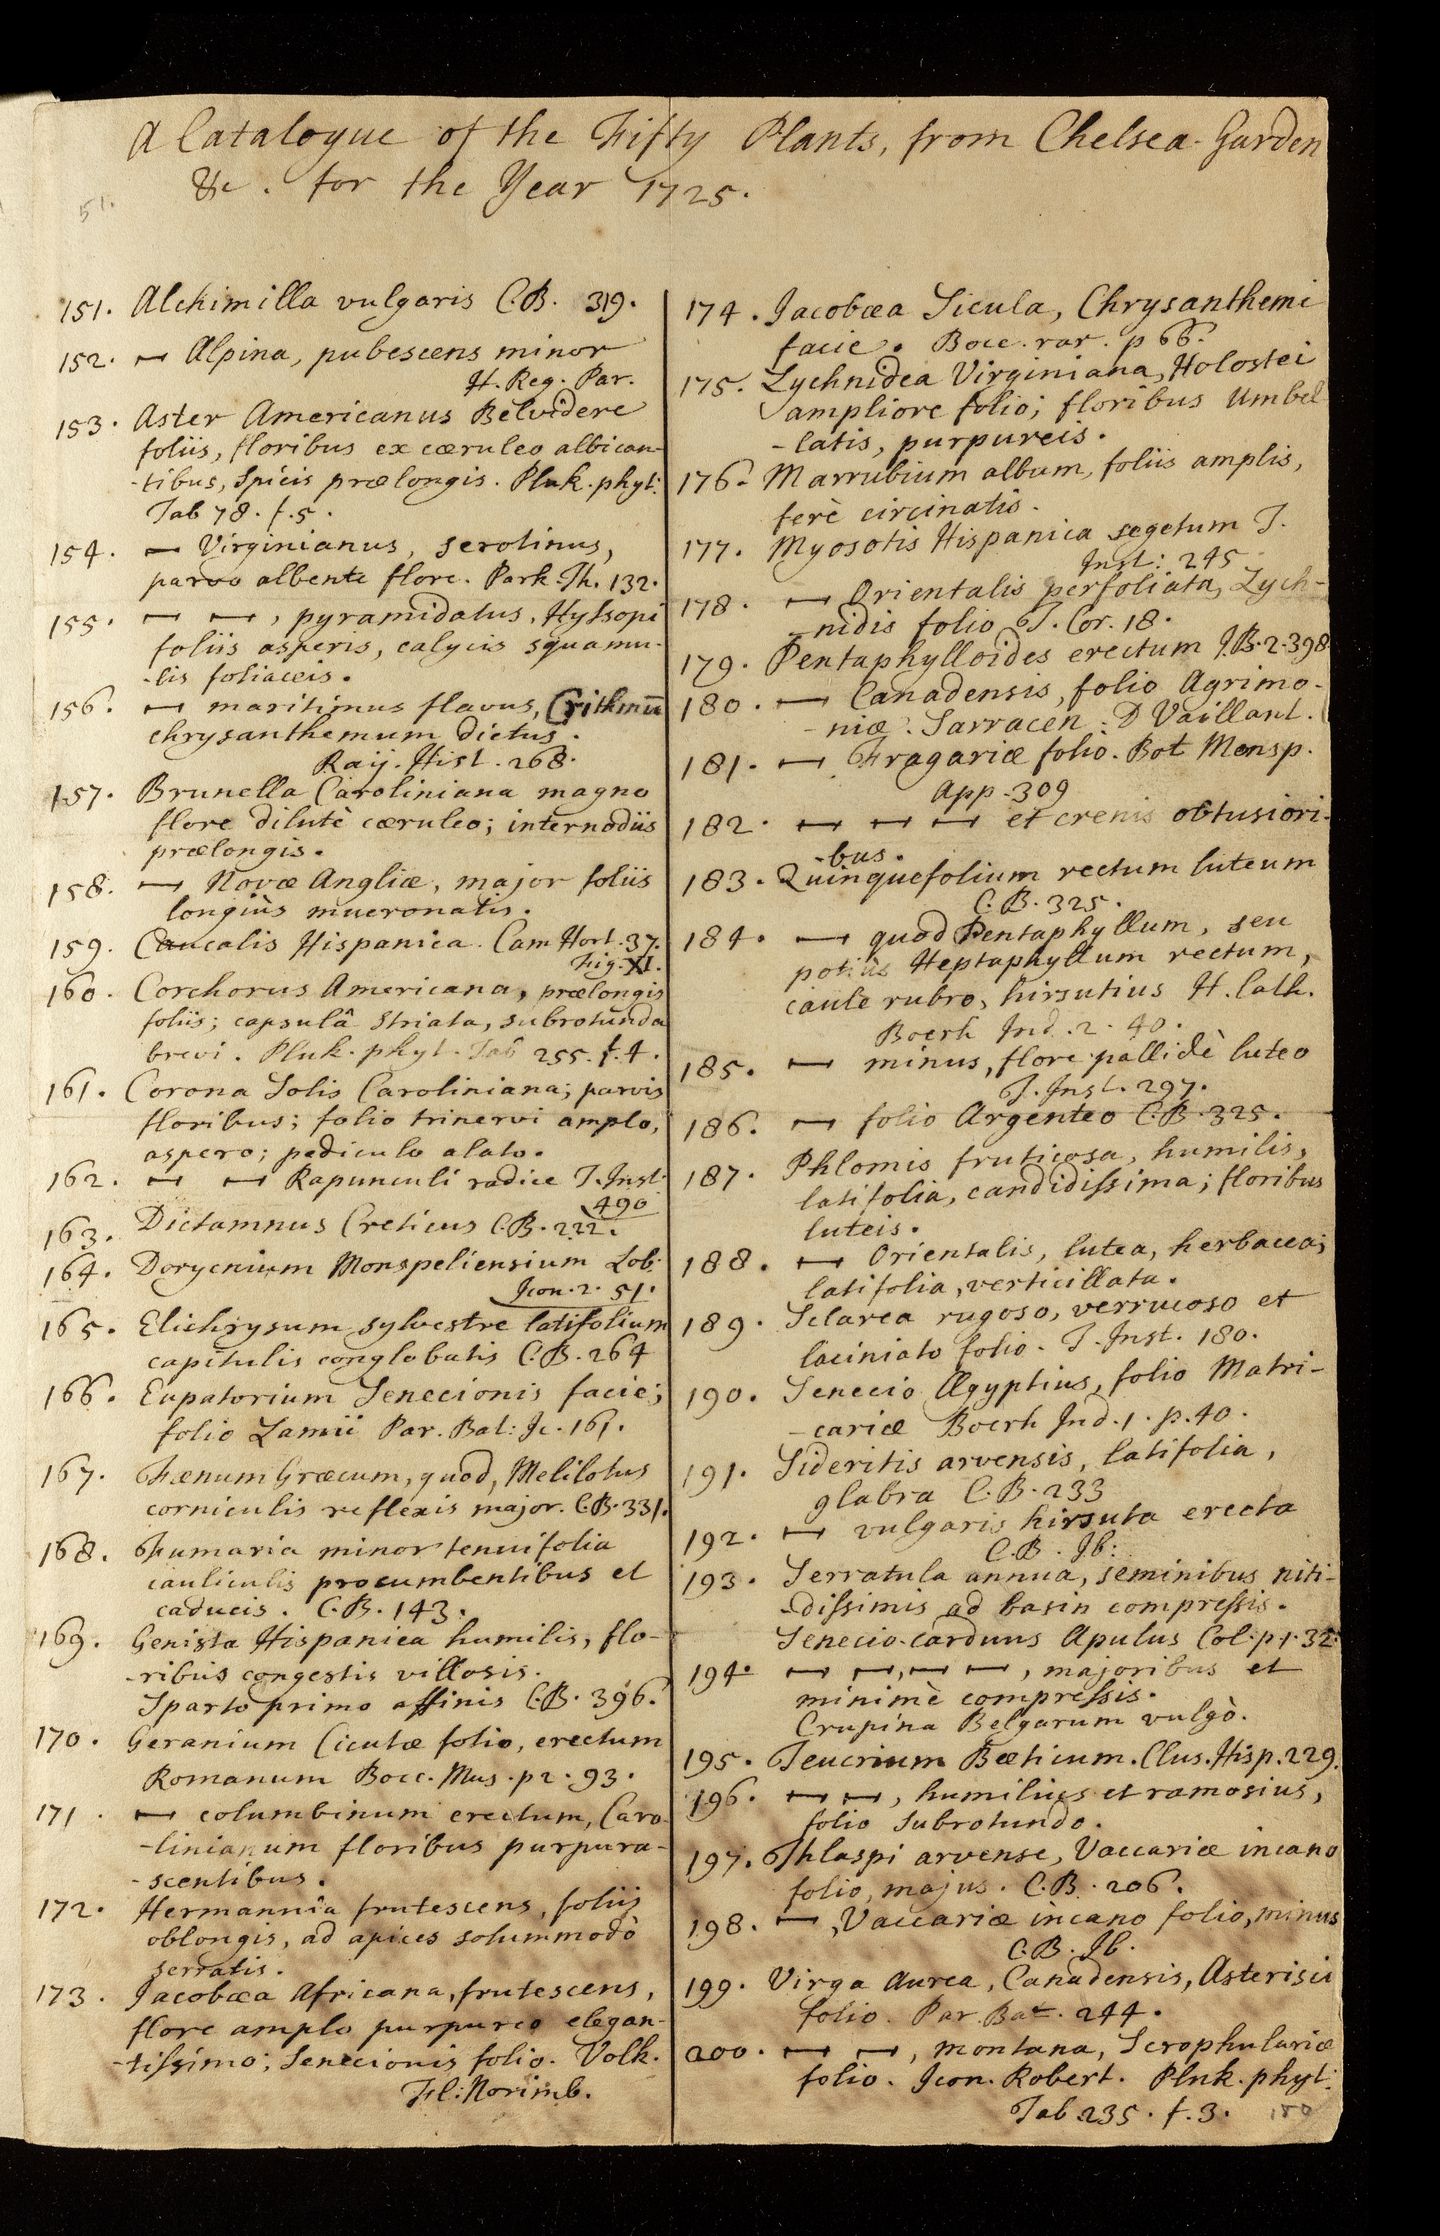 A Catalogue of the Fifty Plants, from Chelsea-Garden
&c. for the Year 1725.
51.
151. Alchimilla vulgaris C.B. 319.
152. — Alpina, pubescens minor
H. Reg. Par.
153. Aster Americanus Belvidere
foliis, floribus ex cæruleo albican-
-tibus, Spicis prælongis. Pluk. phyt:
Tab 78. f.5.
154. — Virginianus, serotinus,
parvo albente flore. Park. Th. 132.
155. — —, pyramidatus, Hyssopi
foliis asperis, calycis squamu-
-lis foliaceis.
156. — maritimus flavus, Crithmū
chrysanthemum dictus.
Raij. Hist. 268.
157. Brunella Caroliniana magno
flore dilutè cæruleo; internodiis
prælongis.
158. — Novæ Angliæ, major foliis
longiùs mucronatis.
159. Caucalis Hispanica. Cam Hort. 37.
Fig. XI.
160. Corchorus Americana, prælongis
foliis; capsulâ Striata, subrotunda
brevi. Pluk. phyt. Tab 255. f.4.
161. Corona Solis Caroliniana; parvis
floribus; folio trinervi amplo,
aspero; pediculo alato.
162. — — Rapunculi radice T. Inst.
490
163. Dictamnus Creticus C.B. 222.
164. Dorycnium Monspeliensium Lob:
Icon. 2. 51.
165. Elichrysum sylvestre latifolium
capitulis conglobatis C.B. 264
166. Eupatorium Senecionis facie;
folio Lamii Par. Bat: Ic. 161.
167. Fænum Græcum, quod, Melilotus
corniculis reflexis major. C.B. 331.
168. Fumaria minor tenuifolia
cauliculis procumbentibus et
caducis. C.B. 143.
169. Genista Hispanica humilis, flo-
-ribus congestis villosis.
Sparto primo affinis C.B. 396.
170. Geranium Cicutæ folio, erectum
Romanum Bocc. Mus. p2. 93.
171. — columbinum erectum, Caro-
-linianum floribus purpura-
-scentibus.
172. Hermannia frutescens, foliis
oblongis, ad apices solummodò
serratis.
173. Jacobæa Africana, frutescens,
flore amplo purpureo elegan-
-tissimo; Senecionis folio. Volk.
Fl: Norimb.
174. Jacobæa Sicula, Chrysanthemi
facie. Bocc. rar. p 66.
175. Lychnidea Virginiana, Holostei
ampliore folio; floribus Umbel
-latis, purpureis.
176. Marrubium album, foliis amplis,
ferè circinatis.
177. Myosotis Hispanica segetum T.
Inst: 245
178. — Orientalis perfoliata, Lych-
-nidis folio T. Cor. 18.
179. Pentaphylloides erectum J.B. 2. 398
180. — Canadensis, folio Agrimo-
-niæ. Sarracen: D Vaillant.
181. — Fragariæ folio. Bot Monsp.
App. 309
182. — — — et crenis obtusiori-
-bus.
183. Quinquefolium rectum luteum
C.B. 325.
184. — quod Pentaphyllum, seu
potiùs Heptaphyllum rectum,
caule rubro, hirsutius H. Cath.
Boerh Ind. 2. 40.
185. — minus, flore pallidè luteo
T. Inst. 297.
186. — folio Argenteo C.B. 325.
187. Phlomis fruticosa, humilis,
latifolia, candidissima; floribus
luteis.
188. — Orientalis, lutea, herbacea;
latifolia, verticillata.
189. Sclarea rugoso, verrucoso et
laciniato folio. T. Inst. 180.
190. Senecio Ægyptius, folio Matri-
-cariæ Boerh Ind. 1. p. 40.
191. Sideritis arvensis, latifolia,
glabra C.B. 233
192. — vulgaris hirsuta erecta
C.B. Ib:
193. Serratula annua, seminibus niti-
-dissimis ad basin compressis.
Senecio-carduus Apulus Col. p.1. 32.
194. — —, — —, majoribus et
minimè compressis.
Crupina Belgarum vulgò.
195. Teucrium Bæticum. Clus. Hisp. 229.
196. — —, humilius et ramosius,
folio Subrotundo.
197. Thlaspi arvense, Vaccariæ incano
folio, majus. C.B. 206.
198. —, Vaccariæ incano folio, minus
C.B. Ib.
199. Virga Aurea, Canadensis, Asterisci
folio. Par. Bat. 244.
200. — —, montana, Scrophulariæ
folio. Icon. Robert. Pluk. phyt:
Tab 235. f.3.
150